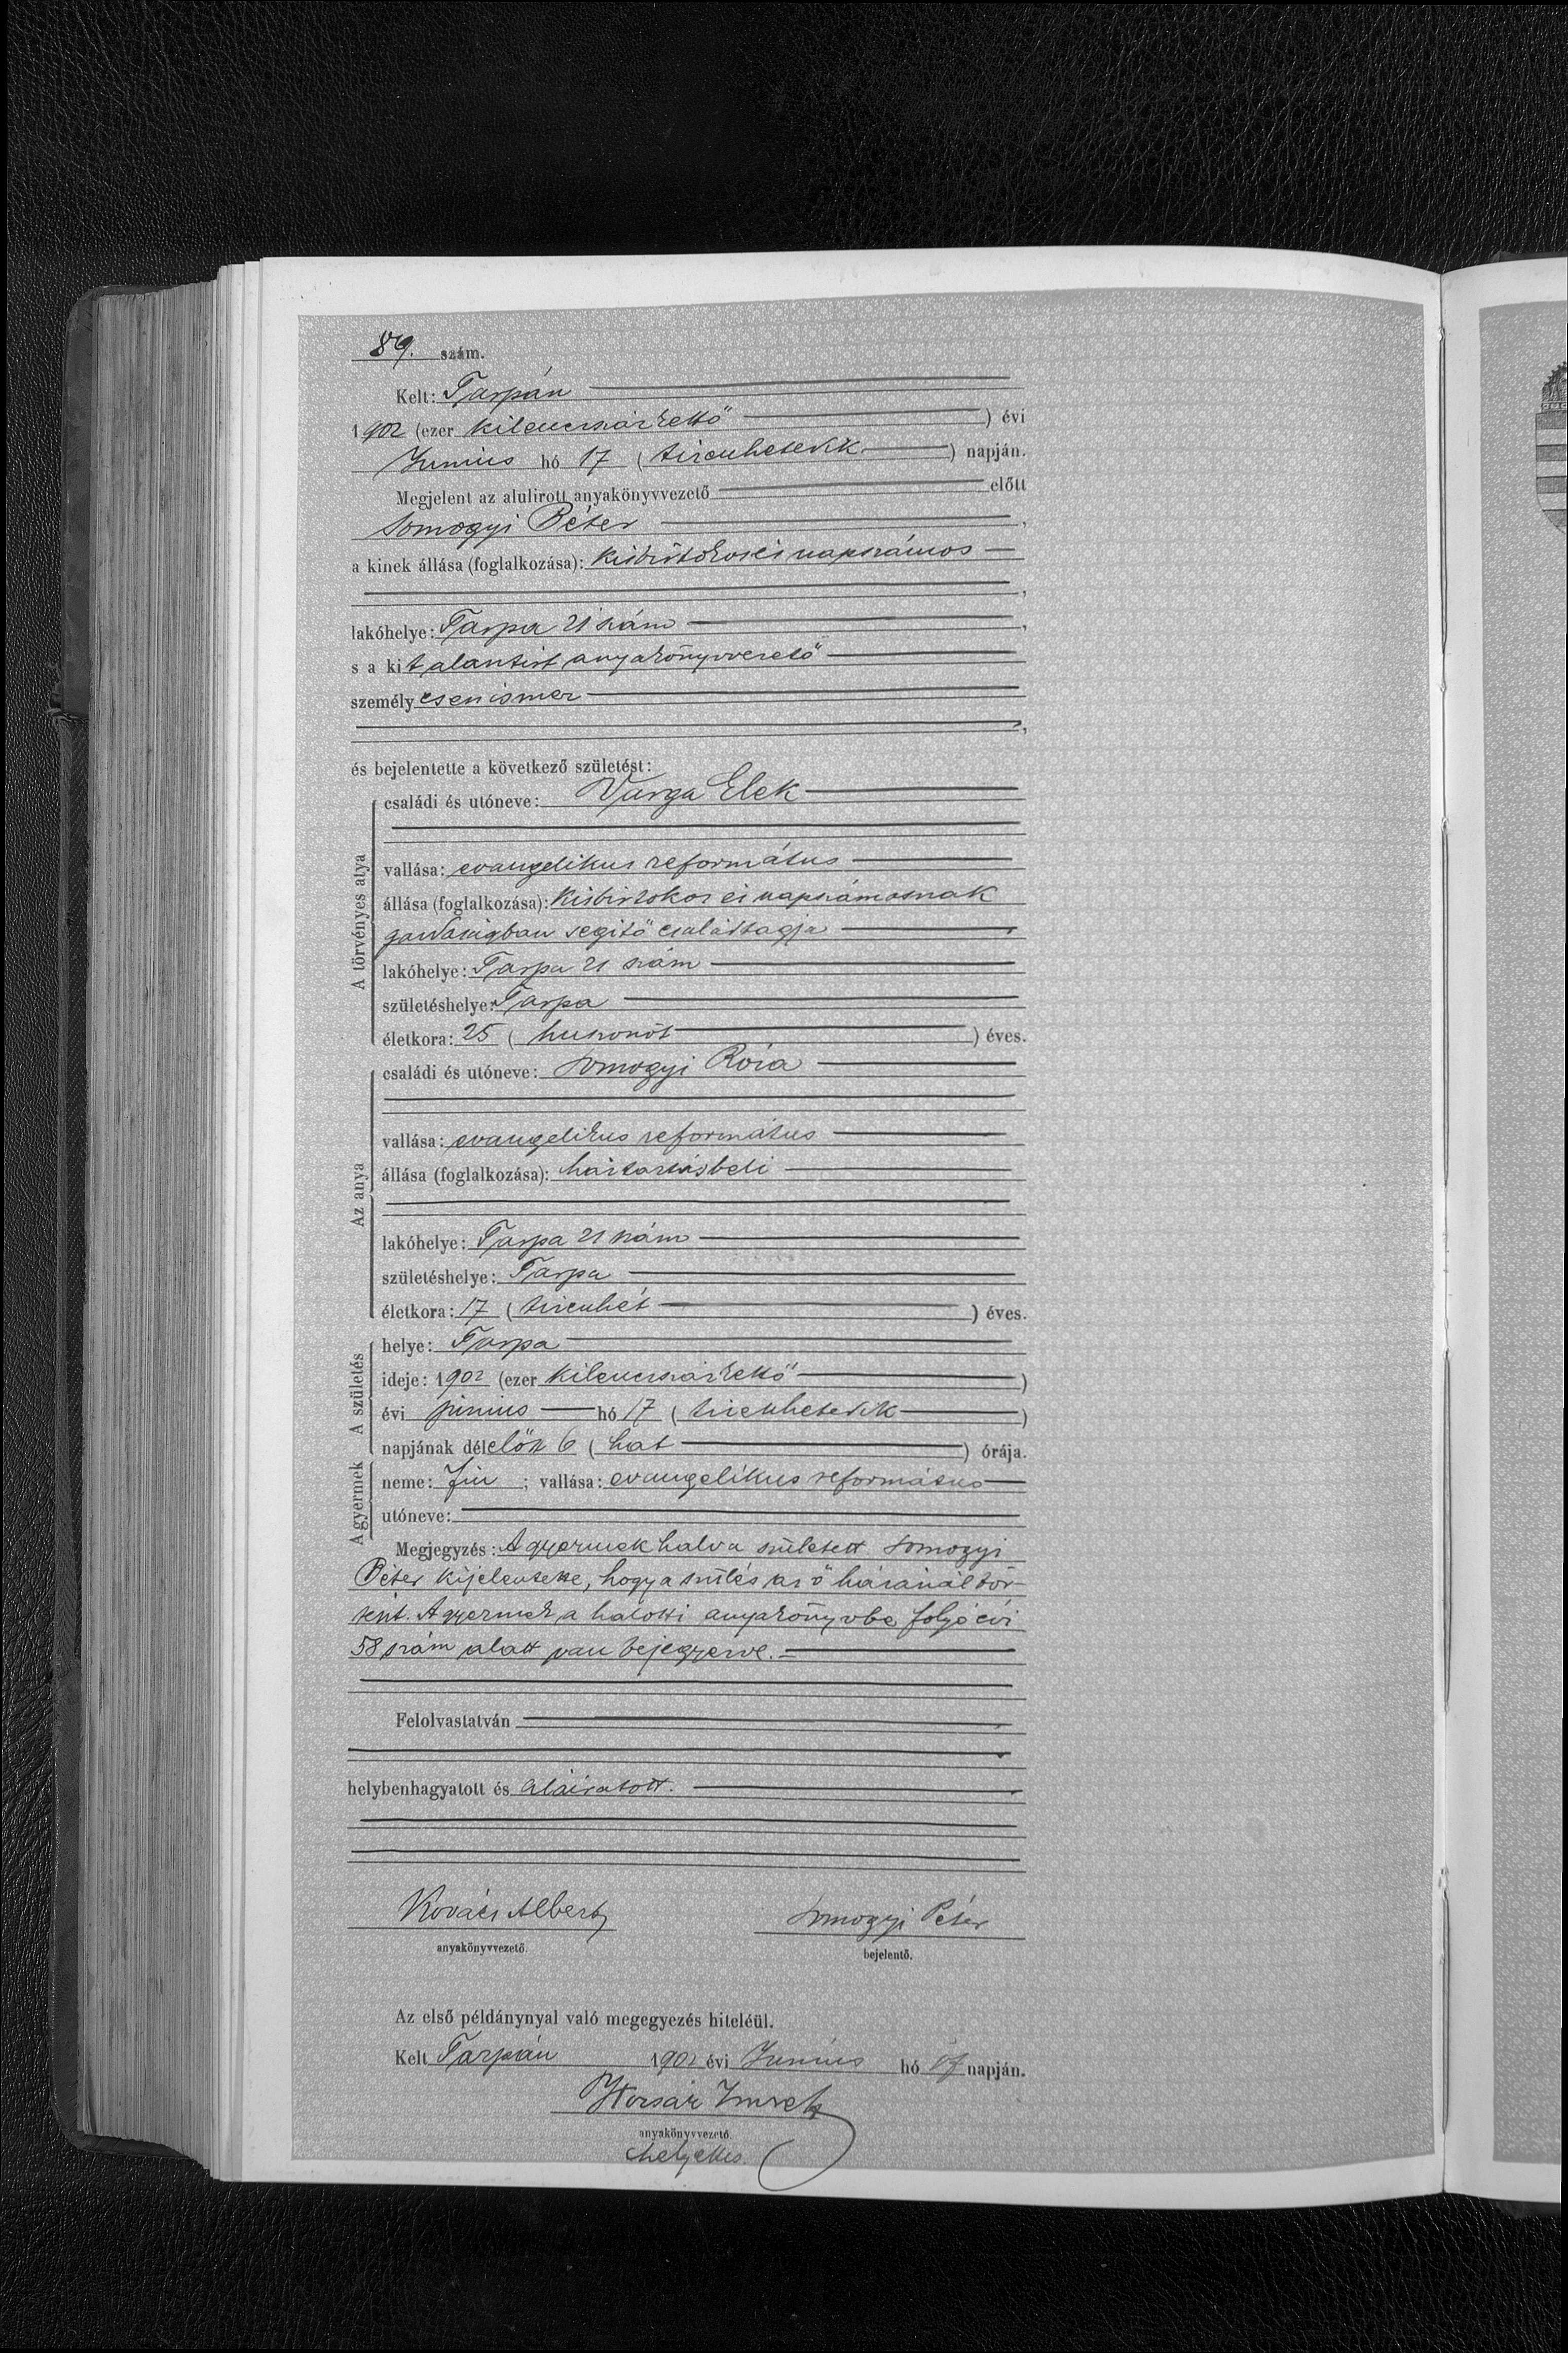 89. szám.
Kelt: Tarpán
1902 (ezer kilenczszázkettő) évi
Junius hó 17 (tizenhetedik) napján.
Megjelent az alulirott anyakönyvvezető előtt
Somogyi Péter,
a kinek állása (foglalkozása): kisbirtokos és napszámos
,
lakóhelye: Tarpa 21 szám,
s a kit alantirt anyakönyvvezető
személyesen ismer
,
és bejelentette a következő születést:
A törvényes atya
családi és utóneve: Varga Elek
vallása: evangelikus református
állása (foglalkozása): kisbirtokos és napszámosnak
gazdaságban segítő családtagja
lakóhelye: Tarpa 21 szám
születéshelye: Tarpa
életkora: 25 (huszonöt) éves.
Az anya
családi és utóneve: Somogyi Róza
vallása: evangelikus református
állása (foglalkozása): háztartásbeli
lakóhelye: Tarpa 21 szám
születéshelye: Tarpa
életkora: 17 (tizenhét) éves.
A születés
helye: Tarpa
ideje: 1902 (ezer kilenczszázkettő)
évi junius hó 17 (tizenhetedik)
napjának délelőtt 6 (hat) órája.
A gyermek
neme: fiu; vallása: evangelikus református
utóneve:
Megjegyzés: A gyermek halva született. Somogyi
Péter kijelentette, hogy a szülés az ő házánál tör-
tént. A gyermek a halotti anyakönyvbe folyó évi
58 szám alatt van bejegyezve.
Felolvastatván
helybenhagyatott és aláiratott.
Kovács Albert Somogyi Péter
anyakönyvvezető. bejelentő.
Az első példánynyal való megegyezés hiteléül.
Kelt Tarpán 1902 évi Junius hó 17 napján.
Imre
anyakönyvvezető.
helyettes.